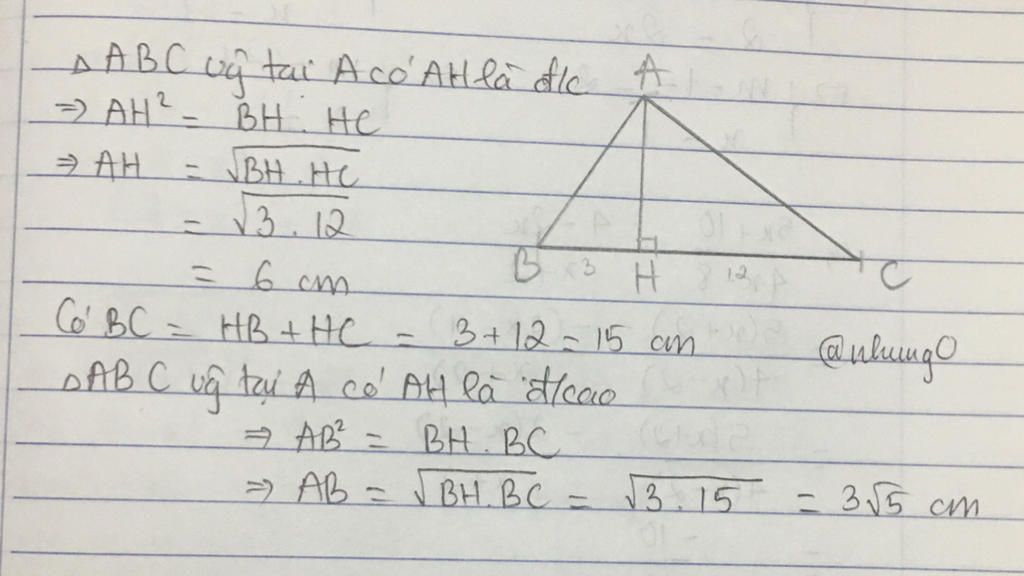 △ABC vg̃ tại A có AH là đ/c
⇒ AH² = BH . HC
⇒ AH = √BH.HC
= √3 . 12
= 6 cm
A
B 3 H 12 C
Có BC = HB + HC = 3 + 12 = 15 cm
@nhung0
△ABC vg̃ tại A có AH là đ/cao
⇒ AB² = BH . BC
⇒ AB = √BH.BC = √3 . 15 = 3√5 cm